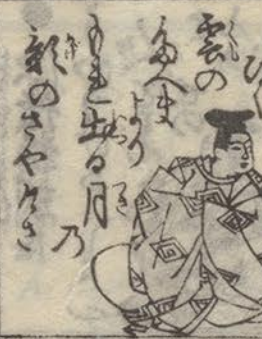 びく
雲の
たえま
より
もれ出る月
乃
影のさやけさ